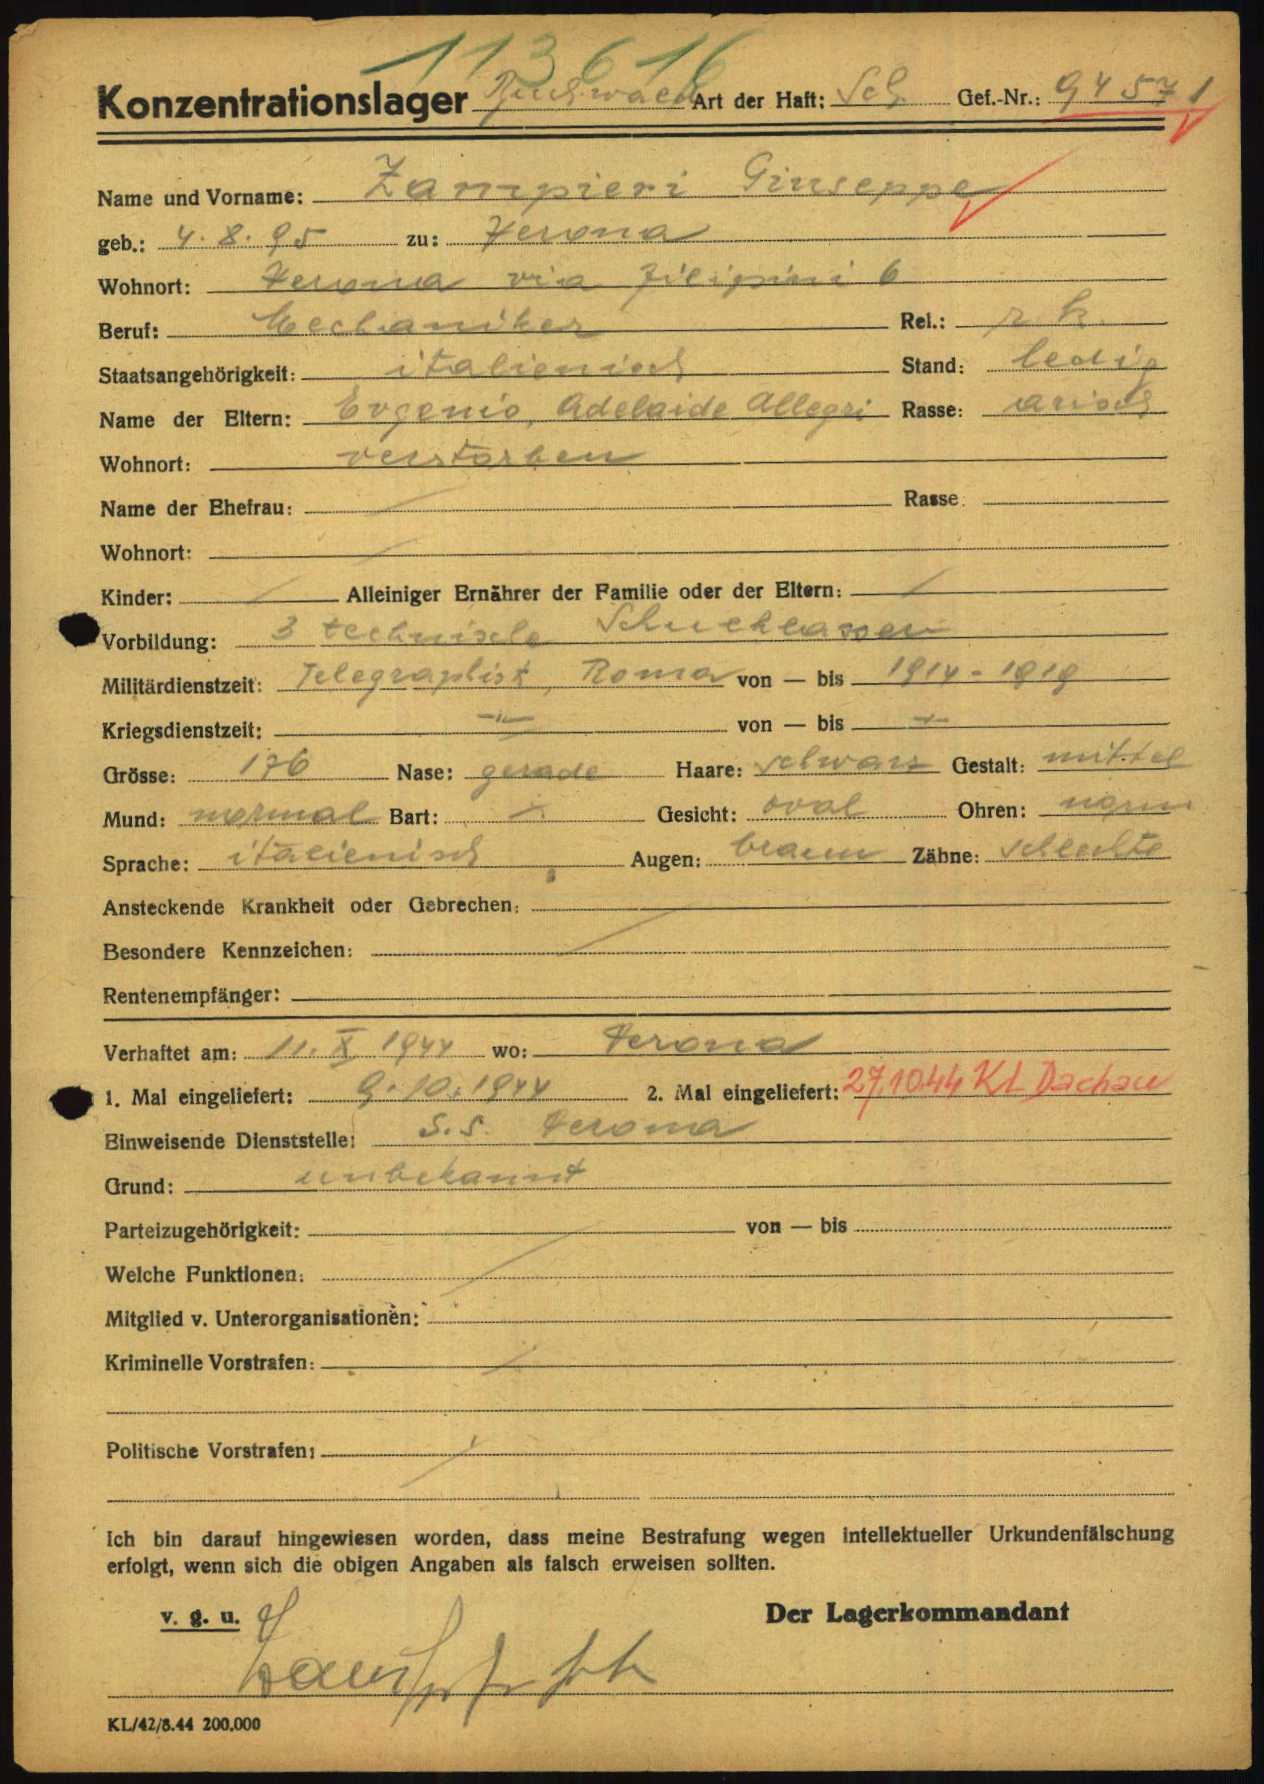 113616
Konzentrationslager Buchwald Art der Haft: Sch. Gef.-Nr.: 94571
Name und Vorname: Zampieri Giuseppe
geb.: 4.8.95 zu: Verona
Wohnort: Verona via Filipini 6
Beruf: Mechaniker Rel.: r.k.
Staatsangehörigkeit: italienisch Stand: ledig
Name der Eltern: Eugenio, Adelaide Allegri Rasse: arisch
Wohnort: verstorben
Name der Ehefrau: / Rasse
Wohnort: /
Kinder: / Alleiniger Ernährer der Familie oder der Eltern: /
Vorbildung: 3 technische Schulklassen
Militärdienstzeit: Telegraphist, Roma von — bis 1914-1919
Kriegsdienstzeit: von — bis
Grösse: 176 Nase: gerade Haare: schwarz Gestalt: mittel
Mund: normal Bart: Gesicht: oval Ohren:
Sprache: italienisch Augen: braun Zähne: schlechte
Ansteckende Krankheit oder Gebrechen:
Besondere Kennzeichen: /
Rentenempfänger:
Verhaftet am: 11.X.1944 wo: Verona
1. Mal eingeliefert: 9.10.1944 2. Mal eingeliefert: 27.10.44 KL Dachau
Einweisende Dienststelle: S.S. Verona
Grund: unbekannt
Parteizugehörigkeit: von — bis
Welche Funktionen: /
Mitglied v. Unterorganisationen:
Kriminelle Vorstrafen: /
Politische Vorstrafen: /
Ich bin darauf hingewiesen worden, dass meine Bestrafung wegen intellektueller Urkundenfälschung
erfolgt, wenn sich die obigen Angaben als falsch erweisen sollten.
v. g. u. Der Lagerkommandant
KL/42/8.44 200.000